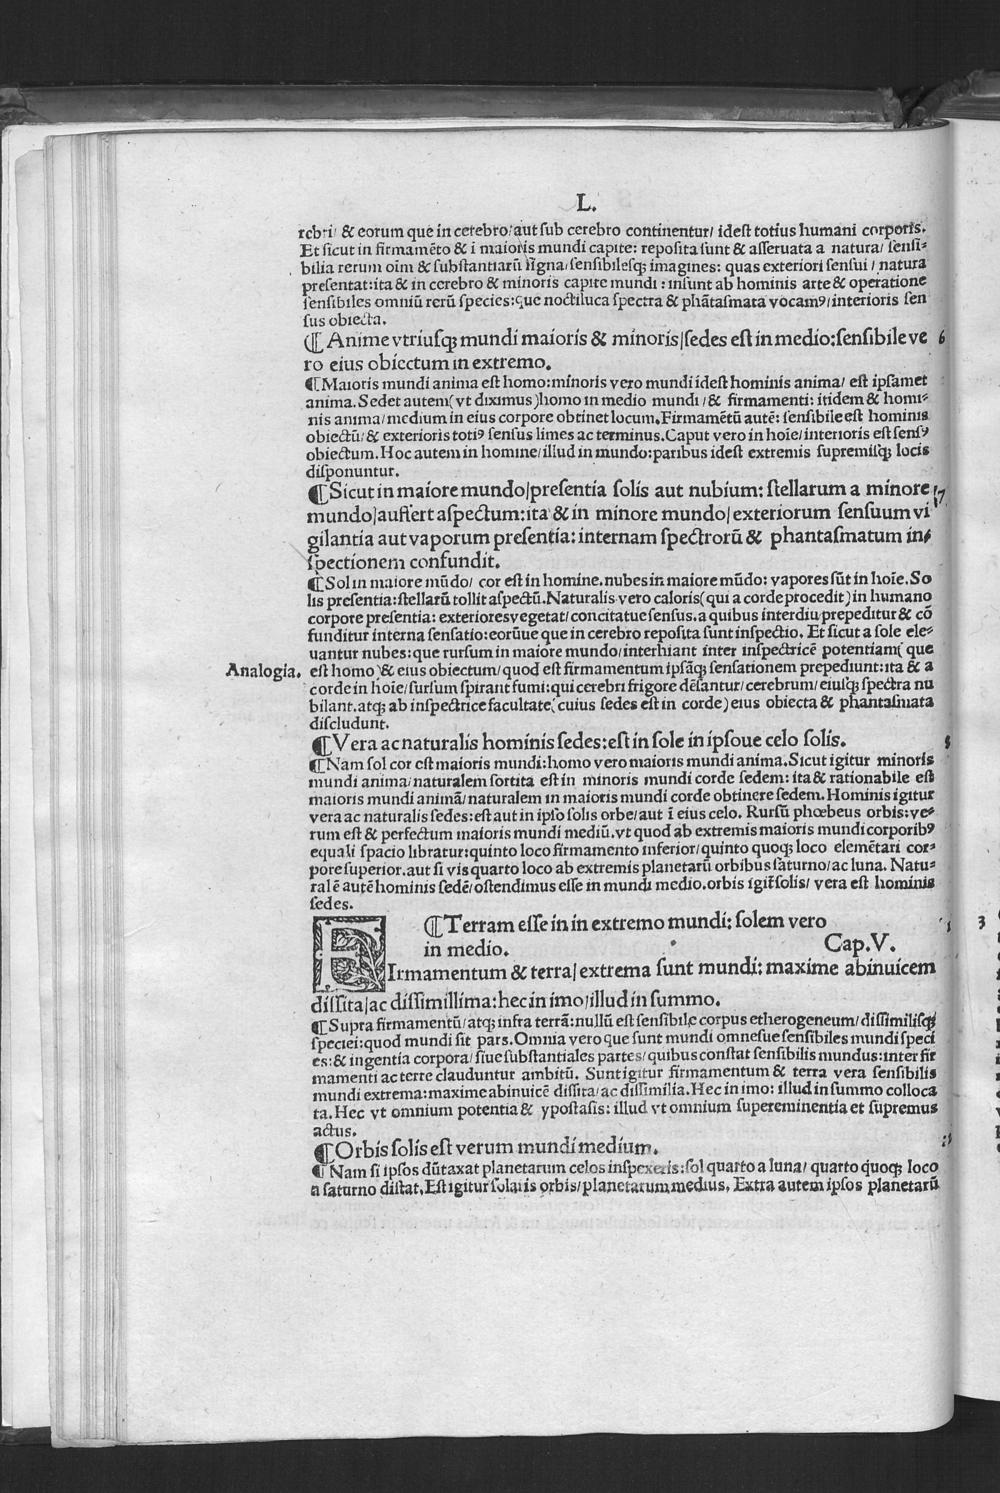 L.
rebri/ & eorum que in cerebro/aut sub cerebro continentur/ idest totius humani corporis.
Et sicut in firmamēto & i maioris mundi capite: reposita sunt & asseruata a natura/ sensi-
bilia rerum oīm & substantiarū signa/sensibilesqꝫ imagines: quas exteriori sensui / natura
presentat:ita & in cerebro & minoris capite mundi : insunt ab hominis arte & operatione
sensibiles omniū rerū species:que noctiluca spectra & phātasmata vocamꝰ/interioris sen
sus obiecta.
¶ Anime vtriusqꝫ mundi maioris & minoris/sedes est in medio:sensibile ve 6
ro eius obiectum in extremo.
¶Maioris mundi anima est homo:minoris vero mundi idest hominis anima/ est ipsamet
anima. Sedet autem( vt diximus )homo in medio mundi /& firmamenti: itidem & homi-
nis anima/medium in eius corpore obtinet locum.Firmamētū autē: sensibile est hominis
obiectū/& exterioris totiꝰ sensus limes ac terminus.Caput vero in hoīe/interioris est sensꝰ
obiectum. Hoc autem in homine/illud in mundo:paribus idest extremis supremisqꝫ locis
disponuntur.
¶Sicut in maiore mundo/presentia solis aut nubium: stellarum a minore 7
mundo/auffert aspectum:ita & in minore mundo/exteriorum sensuum vi
gilantia aut vaporum presentia: internam spectrorū & phantasmatum in-
spectionem confundit.
¶Sol in maiore mūdo/ cor est in homine.nubes in maiore mūdo: vapores sūt in hoīe. So
lis presentia:stellarū tollit aspectū.Naturalis vero caloris( qui a corde procedit) in humano
corpore presentia: exteriores vegetat/concitatue sensus.a quibus interdiu prepeditur & cō
funditur interna sensatio:eorūue que in cerebro reposita sunt inspectio. Et sicut a sole ele-
uantur nubes:que rursum in maiore mundo/interhiant inter inspectricē potentiam( que
Analogia. est homo & eius obiectum/quod est firmamentum ipsāqꝫ sensationem prepediunt:ita & a
corde in hoīe/sursum spirant fumi:qui cerebri frigore dēsantur/cerebrum/eiusqꝫ spectra nu
bilant.atqꝫ ab inspectrice facultate( cuius sedes est in corde) eius obiecta & phantasmata
discludunt.
¶Vera ac naturalis hominis sedes:est in sole in ipsoue celo solis. 8
¶Nam sol cor est maioris mundi:homo vero maioris mundi anima.Sicut igitur minoris
mundi anima/naturalem sortita est in minoris mundi corde sedem: ita & rationabile est
maioris mundi animā/naturalem in maioris mundi corde obtinere sedem. Hominis igitur
vera ac naturalis sedes:est aut in ipso solis orbe/aut ī eius celo. Rursū phœbeus orbis:ve-
rum est & perfectum maioris mundi mediū.vt quod ab extremis maioris mundi corporibꝰ
equali spacio libratur:quinto loco firmamento inferior/quinto quoqꝫ loco elemētari cor-
pore superior.aut si vis quarto loco ab extremis planetarū orbibus saturno/ac luna. Natu-
ralē autē hominis sedē/ostendimus esse in mundi medio.orbis igit̃ solis/ vera est hominis
sedes.
¶Terram esse in in extremo mundi: solem vero
in medio. Cap.V.
FIrmamentum & terra/extrema sunt mundi: maxime abinuicem
dissita/ac dissimillima:hec in imo/illud in summo.
¶Supra firmamentū/atqꝫ infra terrā:nullū est sensibile corpus etherogeneum/dissimilisqꝫ
speciei:quod mundi sit pars.Omnia vero que sunt mundi omnesue sensibiles mundi speci
es:& ingentia corpora/siue substantiales partes/quibus constat sensibilis mundus:inter fir
mamenti ac terre clauduntur ambitū. Sunt igitur firmamentum & terra vera sensibilis
mundi extrema:maxime abinuicē dissita/ac dissimilia.Hec in imo: illud in summo colloca
ta.Hec vt omnium potentia & ypostasis: illud vt omnium supereminentia et supremus
actus.
¶Orbis solis est verum mundi medium.
¶Nam si ipsos dūtaxat planetarum celos inspexeris:sol quarto a luna/ quarto quoqꝫ loco
a saturno distat.Est igitur solaris orbis/planetarum medius. Extra autem ipsos planetarū